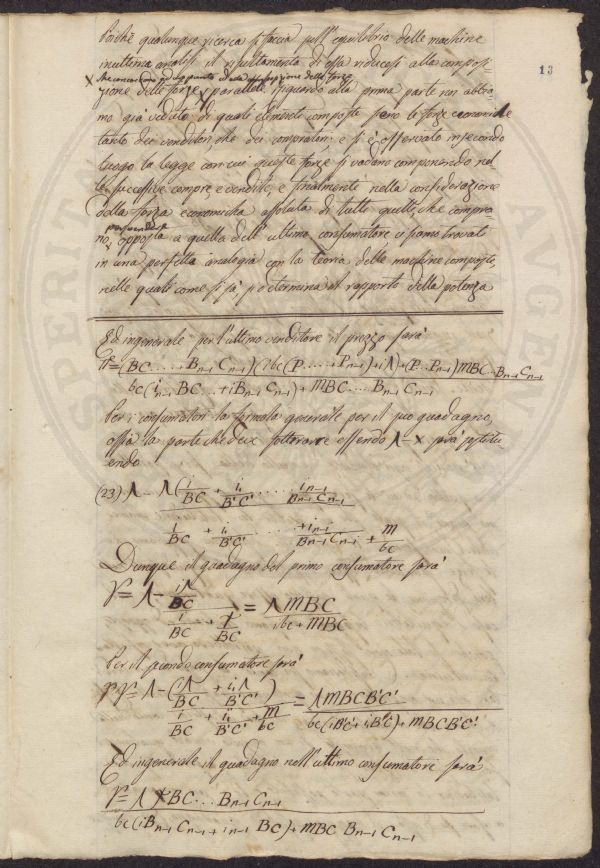 Poichè qualunque ricerca si faccia sull' equilibrio delle machine
in ultima analisi il risultamento di essa riducesi alla composi
zione delle forze parallele riguardo alla prima parte noi abbia
13
mo già veduto di quali elementi composte sieno le forze economiche
tanto dei venditori che dei compratori: e si è osservato in secondo
luogo la legge con cui queste forze si vadano componendo nel
le successive compre, e vendite, e finalmente nella considerazione
della forza economica assoluta di tutti quelli, che compra
no, opposta a quella dell' ultimo consumatore ci siamo trovati
in una perfetta analogia con la teoria delle machine composte,
nelle quali come si sà, si determina il rapporto della potenza
Ed in generale per l'ultimo venditore il prezzo sarà
(BC....Bn-1 Cn-1)(ibc(P....+Pn-1)+iΛ)+(P..Pn-1)mBC..Bn-1Cn-1
bc(in-1 BC..+iBn-1 Cn-1)+mBC....Bn-1 Cn-1
Per i consumatori la formola generale per il suo guadagno,
ossia la parte che deve sottrarre essendo Λ-x sarà
endo
(23) Λ - Λ(i/BC + i,/B'C' ..... in-1/Bn-1Cn-1
i/BC + i,/B'C' ..... +in-1/Bn-1Cn-1 + m/bc
Dunque il guadagno del primo consumatore sarà
γ = Λ - iΛ/BC = ΛmBC
ibc+mBC
Per il secondo consumatore sarà
Λ-(iΛ/BC + i,Λ/B'C') = ΛmBCB'C'
i/BC + i,/B'C' + m/bc bc(iB'C'+i,BC)+mBCB'C'
Ed in generale il guadagno nell'ultimo consumatore sarà
BC...Bn-1 Cn-1
bc(iBn-1 Cn-1+in-1 BC)+mBC Bn-1 Cn-1